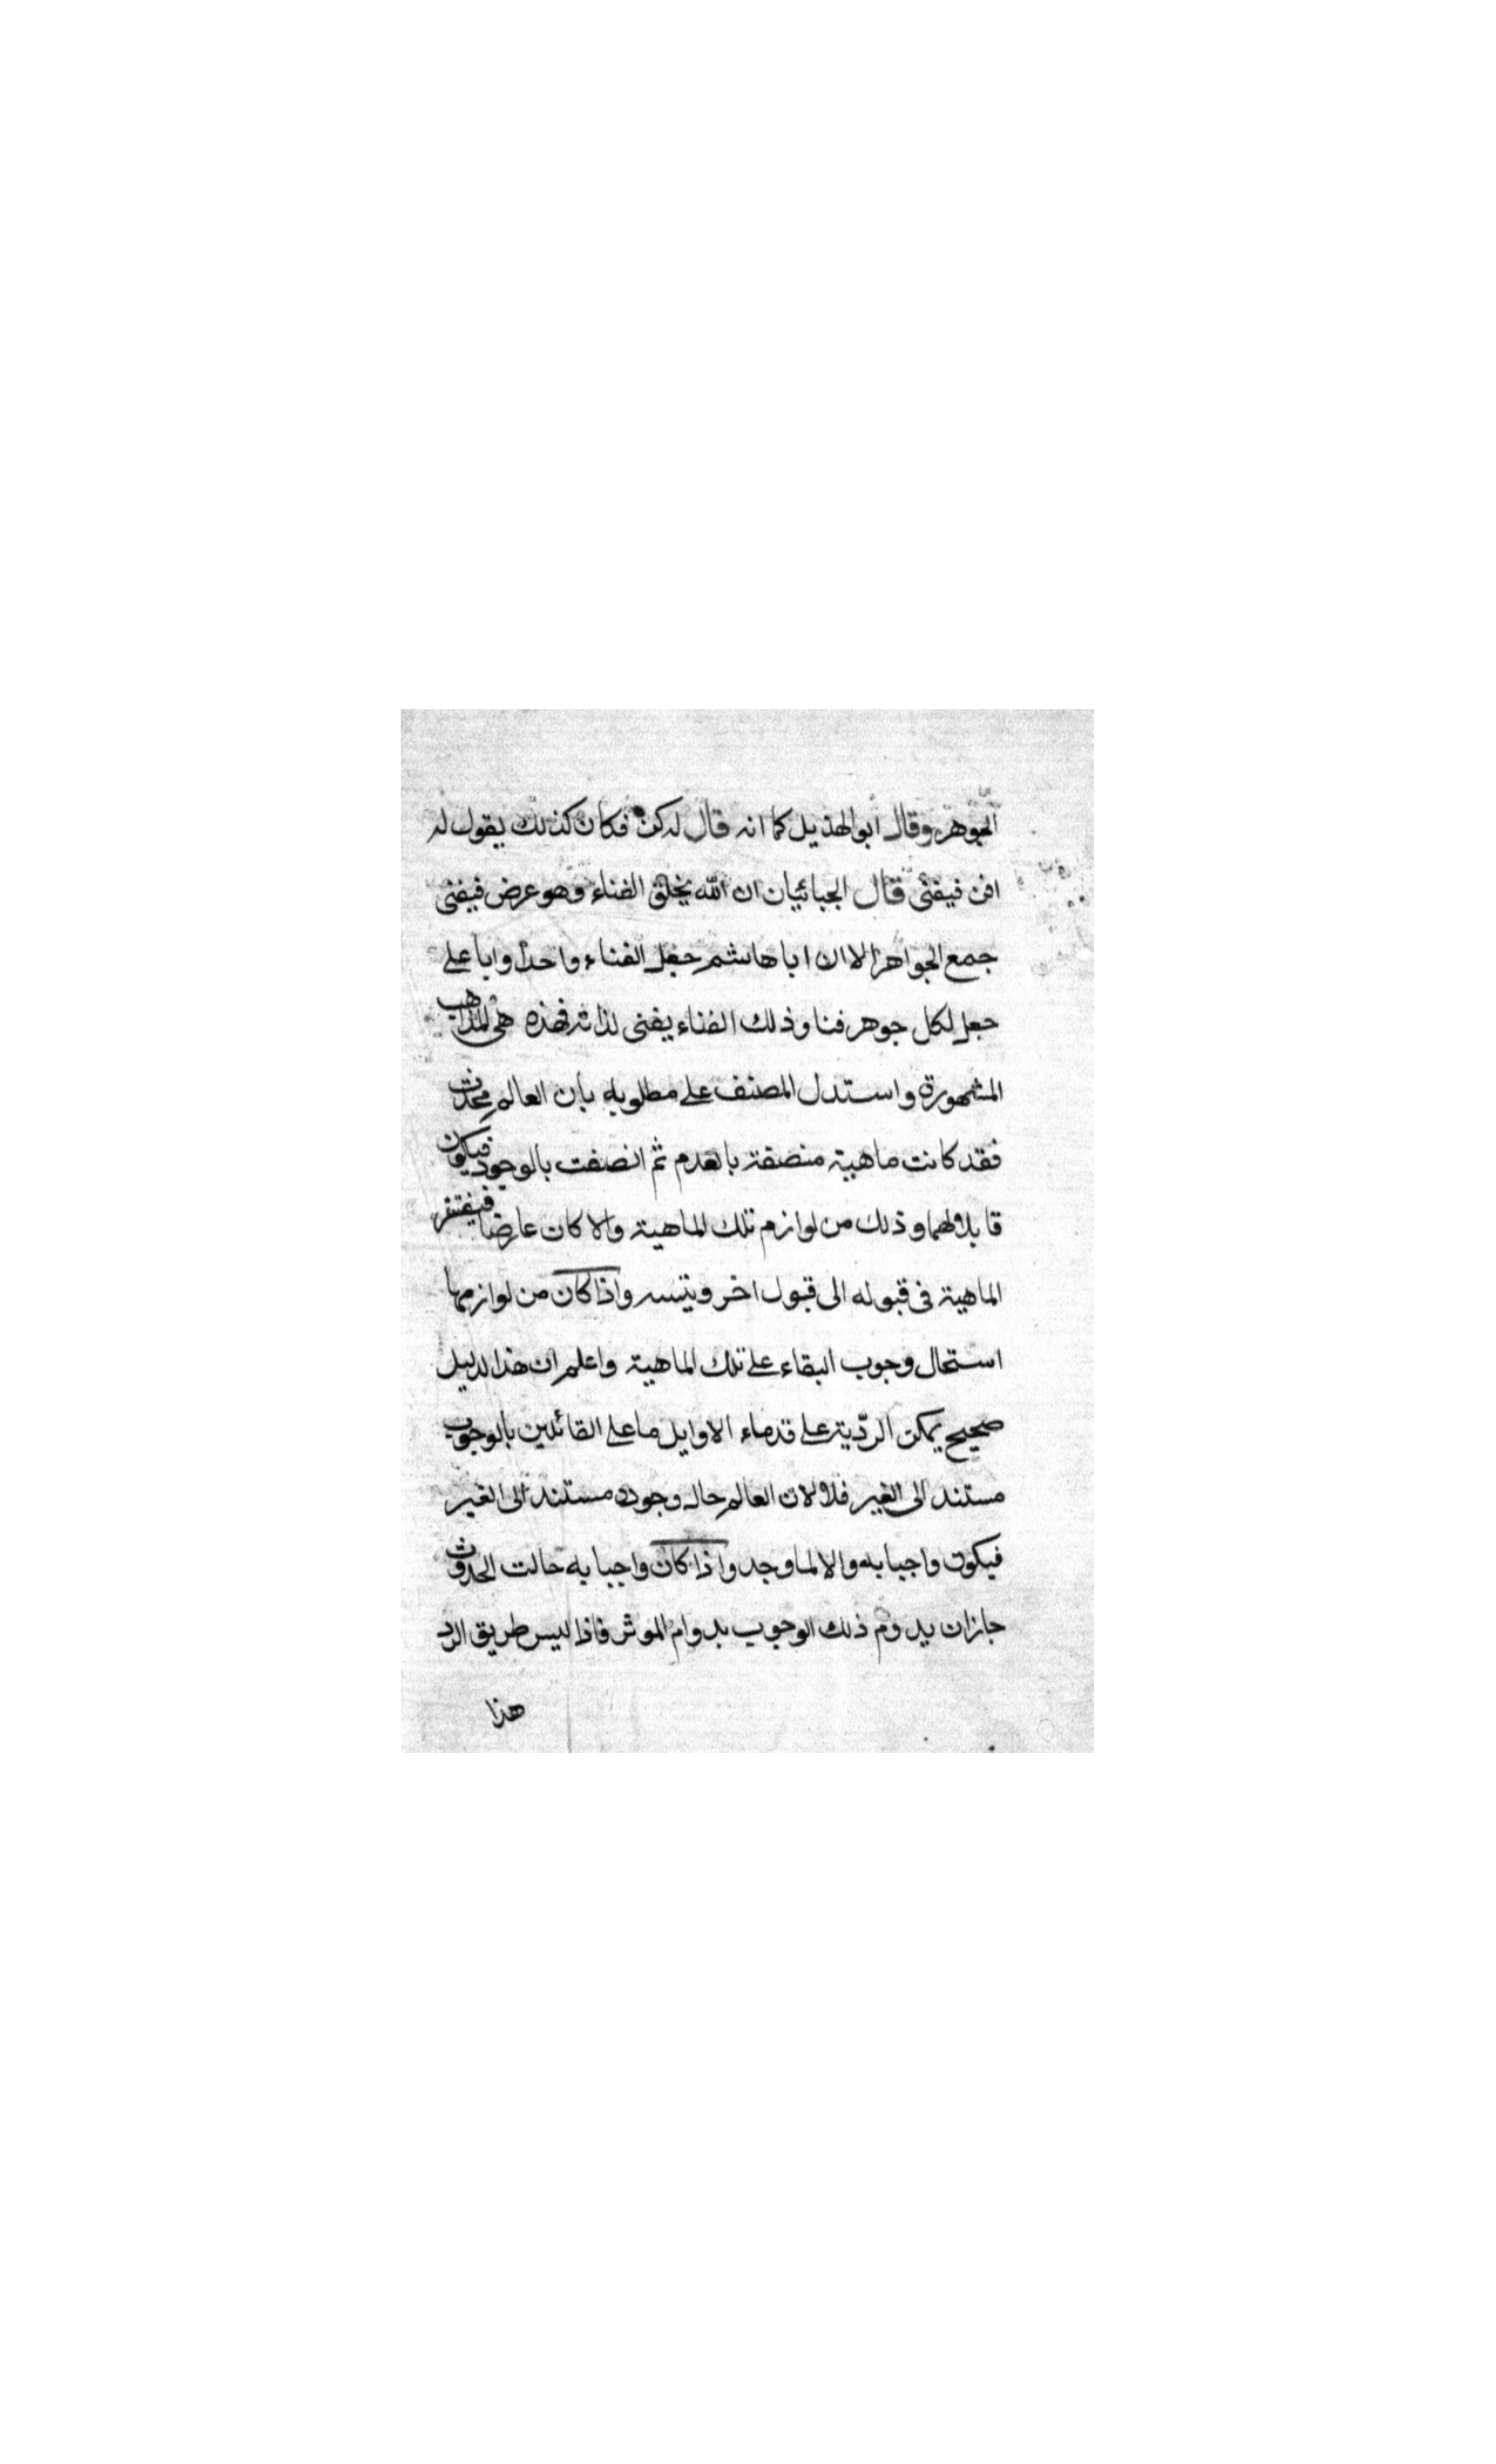 الجوهر وقال ابوالهذيل كما انه قال له كن فكان كذلك يقول له
افن فيفنى قال الجبائيان ان الله يخلق الفناء وهو عرض فيفنى
جمع الجواهر الا ان ابا هاشم جعل الفناء واحدا وابا على
جعل لكل جوهر فنا وذلك الفناء يفنى لذاته فهذه هى المذاهب
المشهورة واستدل المصنف على مطلوبه بان العالم محدث
فقد كانت ماهيية متصفة بالعدم ثم اتصفت بالوجود فيكون
قابلا لهما وذلك من لوازم تلك الماهية والا كان عارضا فيفتقر
الماهية فى قبوله الى قبول اخر ويتسه واذا كان من لوازمها
استحال وجوب البقاء على تلك الماهية واعلم ان هذا لدليل
صحيح يمكن الرد به على قدماء الاوايل ما على القائلين بالوجوب
مستند الى الغير فلا ولان العالم حال وجوده مستند الى الغير
فيكون واجبا به والا لما وجد واذا كان واجبا به حالت الحدوث
جاز ان يدوم ذلك الوجوب بدوام الموثر فاذا ليس طريق الرد
هذا